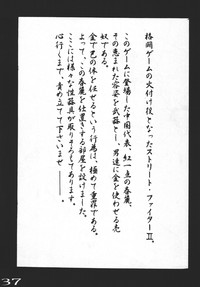 格闘ゲームの火付け役となったストリート・ファイターⅡ。
このゲームに登場した中国代表、紅一点の春麗。
その恵まれた容姿を武器とし、男達に金を使わせる売
奴である。
金で己の体を任せるという行為は、極めて重罪である。
よって、この春麗を仕置きする部屋を設けました。
ここには様々な性器具が取りそろしてあります。
心行くまで、責め立てて下さいませ――――。
37